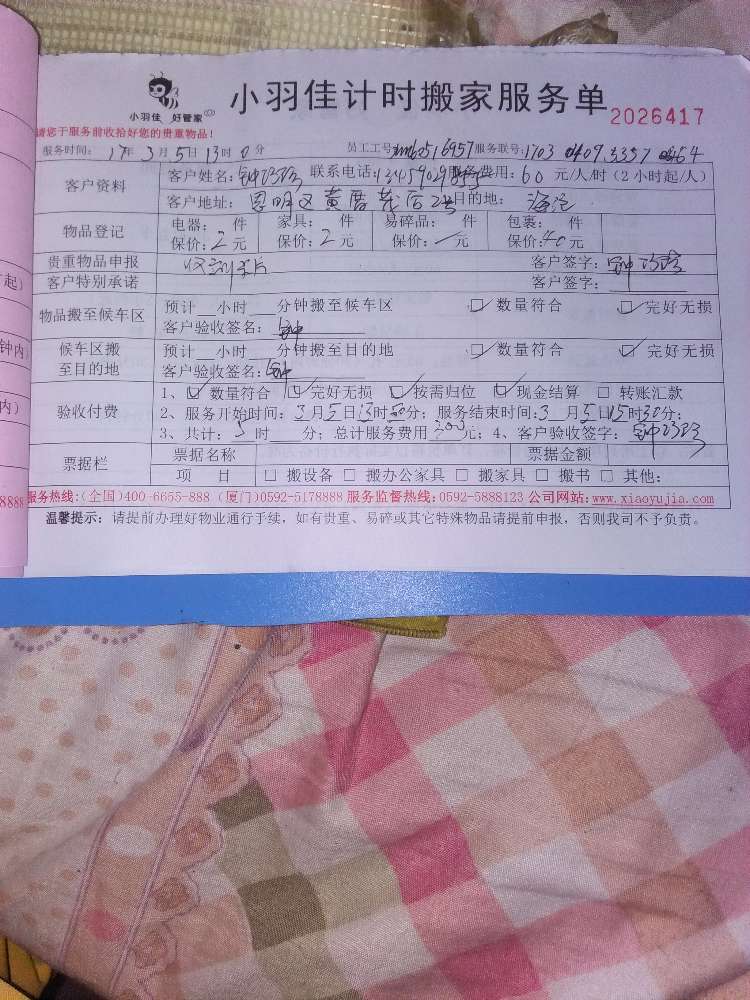 小羽佳 好管家
小羽佳计时搬家服务单
2026417
请您于服务前收拾好您的贵重物品!
服务时间: 17年 3月 5日 13时 0分 员工工号: 服务联号: 1703
客户资料
客户姓名: 钟 联系电话: 服务费用: 60 元/人/时 (2小时起/人)
客户地址: 思明区黄厝 目的地: 海沧
物品登记
电器: 件 家具: 件 易碎品: 件 包裹: 件
保价: 2 元 保价: 2 元 保价: 元 保价: 元
贵重物品申报 客户签字: 钟
客户特别承诺 客户签字:
物品搬至候车区
预计__小时___分钟搬至候车区 ☑ 数量符合 ☑ 完好无损
客户验收签名: 钟
候车区搬至目的地
预计__小时___分钟搬至目的地 ☑ 数量符合 ☑ 完好无损
客户验收签名: 钟
验收付费
1、☑ 数量符合 ☑ 完好无损 ☑ 按需归位 ☑ 现金结算 □ 转账汇款
2、服务开始时间: 3月5日13时 分; 服务结束时间: 3月5日15时30分;
3、共计: 时 分; 总计服务费用 元; 4、客户验收签字: 钟
票据栏
票据名称 票据金额
项 目 □ 搬设备 □ 搬办公家具 □ 搬家具 □ 搬书 □ 其他:
服务热线:(全国)400-6655-888 (厦门)0592-5178888 服务监督热线: 0592-5888123 公司网站: www.xiaoyujia.com
温馨提示: 请提前办理好物业通行手续, 如有贵重、易碎或其它特殊物品请提前申报, 否则我司不予负责。
起)
钟内
内)
8888